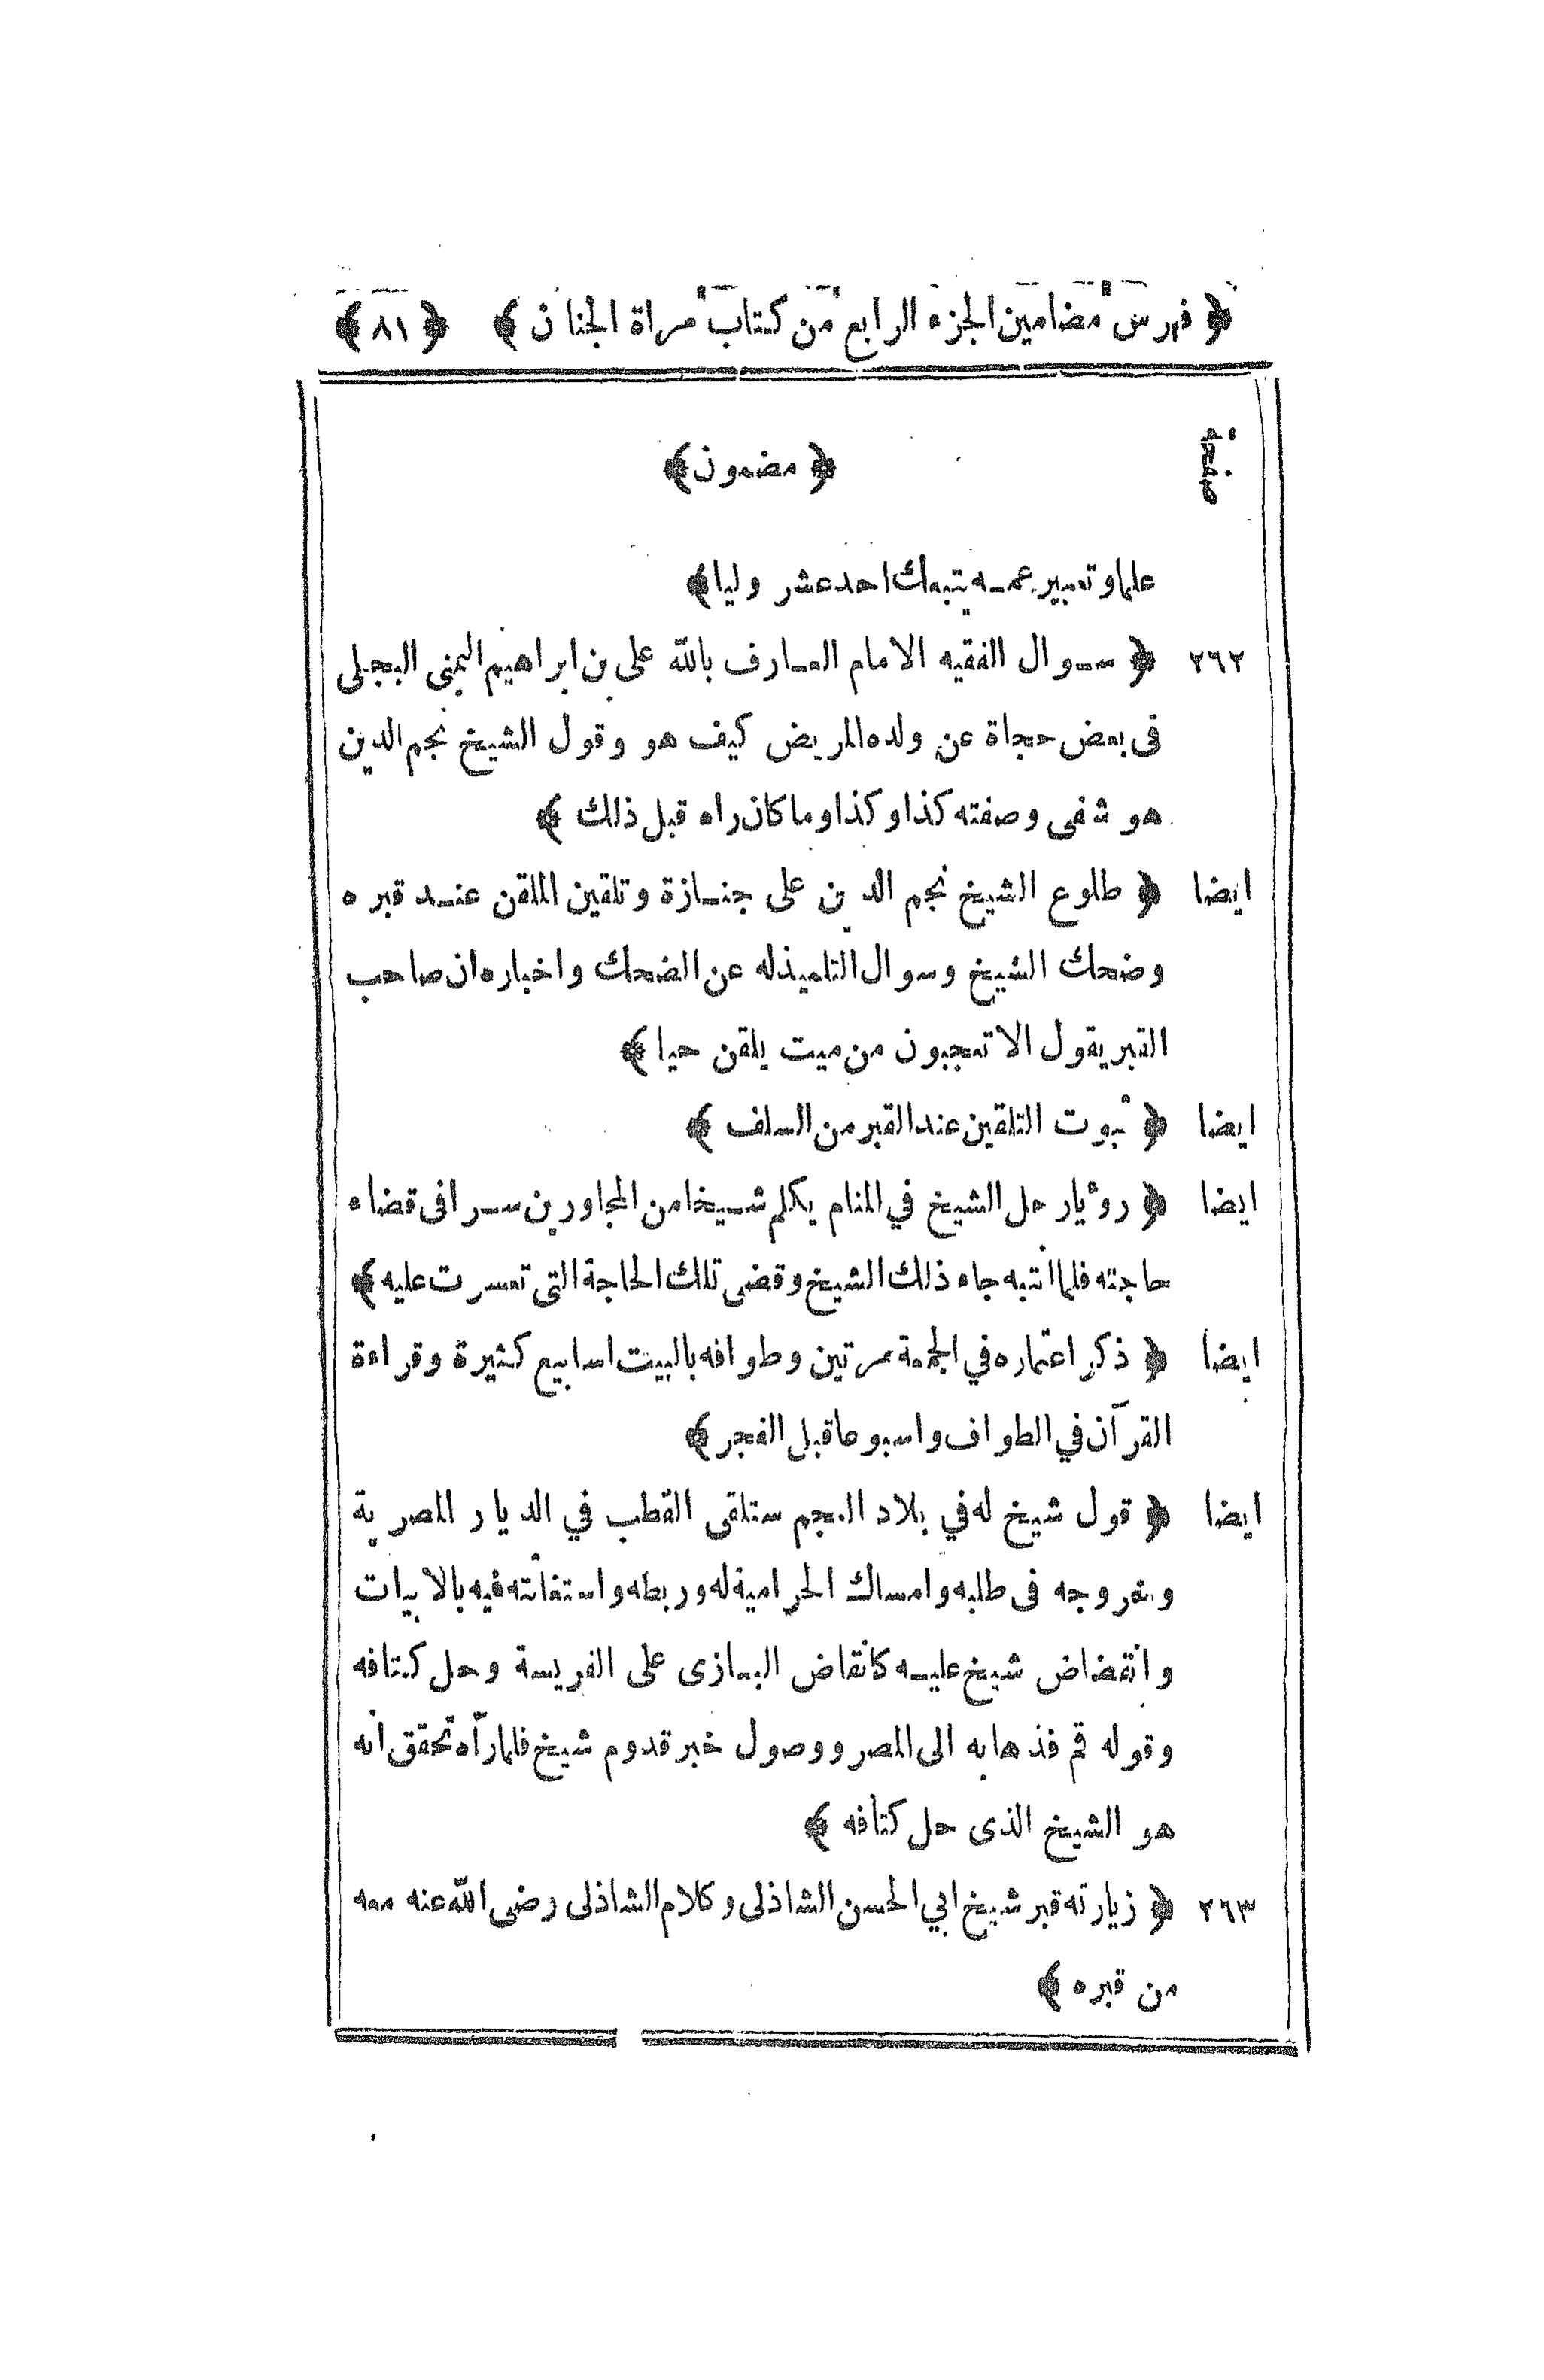 ﴿ فهرس مضامين الجزء الرابع من كتاب مراة الجنان ﴾ ﴿ ٨١ ﴾
صفحة ﴿ مضمون ﴾
علما وتعبير عمه يتبعك احد عشر وليا ﴾
٢٦٢ ﴿ سوال الفقيه الامام العارف بالله على بن ابراهيم اليمنى البجلى
فى بعض حجاة عن ولده المريض كيف هو وقول الشيخ نجم الدين
هو شفى وصفته كذا وكذا وما كان راه قبل ذلك ﴾
ايضا ﴿ طلوع الشيخ نجم الدين على جنازة وتلقين الملقن عند قبره
وضحك الشيخ وسوال التلميذ له عن الضحك واخباره ان صاحب
القبر يقول الا تعجبون من ميت يلقن حيا ﴾
ايضا ﴿ ثبوت التلقين عند القبر من السلف ﴾
ايضا ﴿ رؤيا رجل الشيخ في المنام يكلم شيخا من المجاورين سرا فى قضاء
حاجته فلما انتبه جاء ذلك الشيخ وقضى تلك الحاجة التى تعسرت عليه ﴾
ايضا ﴿ ذكر اعتماره في الجمعة مرتين وطوافه بالبيت اسابيع كثيرة وقراءة
القرآن في الطواف واسبوعا قبل الفجر ﴾
ايضا ﴿ قول شيخ له في بلاد العجم ستلقى القطب في الديار المصرية
وخروجه فى طلبه وامساك الحرامية له وربطه واستغاثته فيه بالابيات
وانقضاض شيخ عليه كانقاض البازى على الفريسة وحل كتافه
وقوله قم فذهابه الى المصر ووصول خبر قدوم شيخ فلما رآه تحقق انه
هو الشيخ الذى حل كتافه ﴾
٢٦٣ ﴿ زيارته قبر شيخ ابي الحسن الشاذلى وكلام الشاذلى رضى الله عنه معه
من قبره ﴾